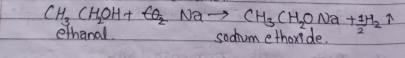 CH₃ CH₂OH + Na → CH₃CH₂O Na + ½H₂ ↑
ethanal. sodium ethoxide.